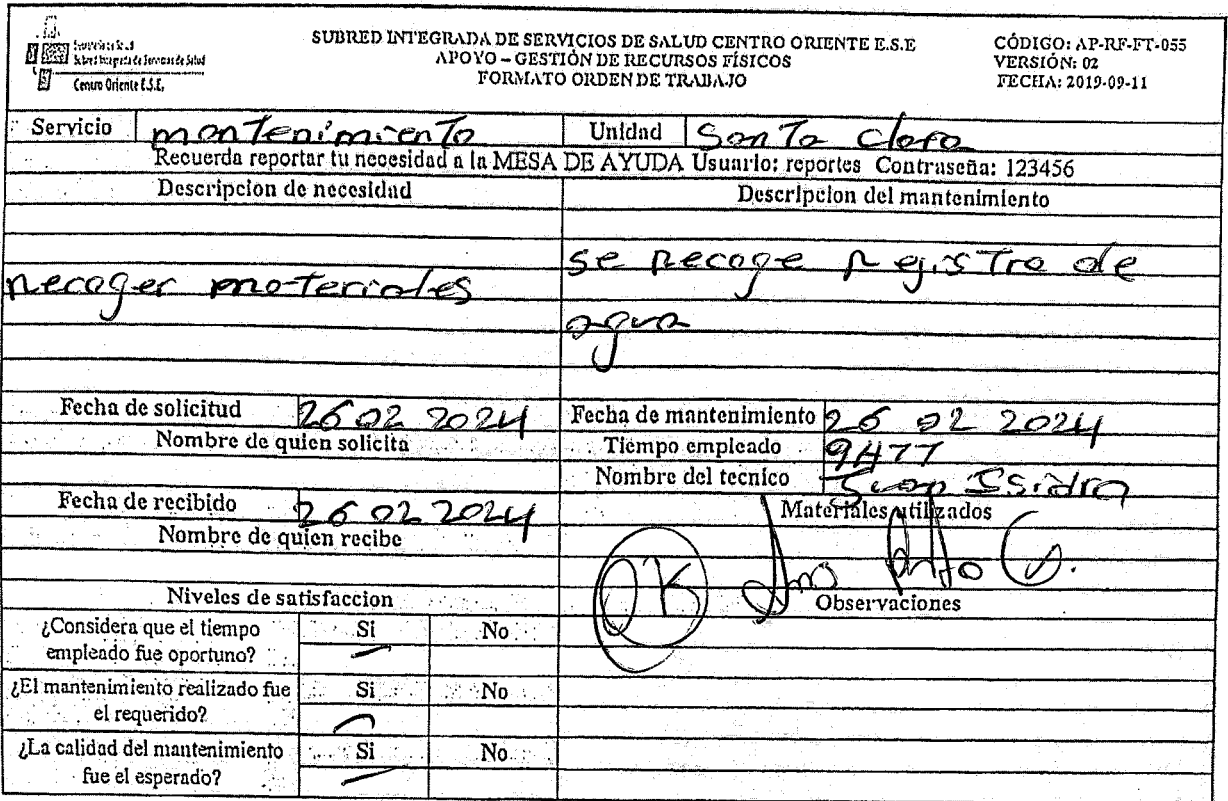 Secretaría de Salud
Subred Integrada de Servicios de Salud
Centro Oriente E.S.E.
SUBRED INTEGRADA DE SERVICIOS DE SALUD CENTRO ORIENTE E.S.E
APOYO – GESTIÓN DE RECURSOS FÍSICOS
FORMATO ORDEN DE TRABAJO
CÓDIGO: AP-RF-FT-055
VERSIÓN: 02
FECHA: 2019-09-11
Servicio mantenimiento Unidad Santa clara
Recuerda reportar tu necesidad a la MESA DE AYUDA Usuario: reportes Contraseña: 123456
Descripcion de necesidad
Descripcion del mantenimiento
recoger materiales
se recoge registro de
agua
Fecha de solicitud 26 02 2024
Fecha de mantenimiento 26 02 2024
Nombre de quien solicita
Tiempo empleado 9477
Nombre del tecnico Juan Isidro
Fecha de recibido 26 02 2024
Materiales utilizados
Nombre de quien recibe
OK
Niveles de satisfaccion
Observaciones
¿Considera que el tiempo
empleado fue oportuno?
Si No
¿El mantenimiento realizado fue
el requerido?
Si No
¿La calidad del mantenimiento
fue el esperado?
Si No